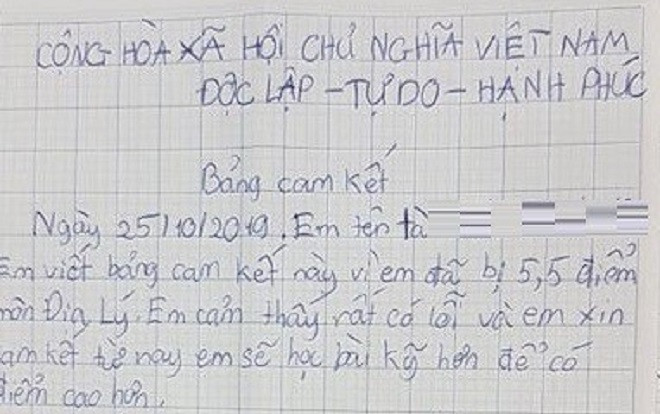 CỘNG HÒA XÃ HỘI CHỦ NGHĨA VIỆT NAM
ĐỘC LẬP - TỰ DO - HẠNH PHÚC
Bảng cam kết
Ngày 25/10/2019. Em tên là
Em viết bảng cam kết này vì em đã bị 5,5 điểm
môn Địa Lý. Em cảm thấy rất có lỗi và em xin
cam kết từ nay em sẽ học bài kỹ hơn để có
điểm cao hơn.